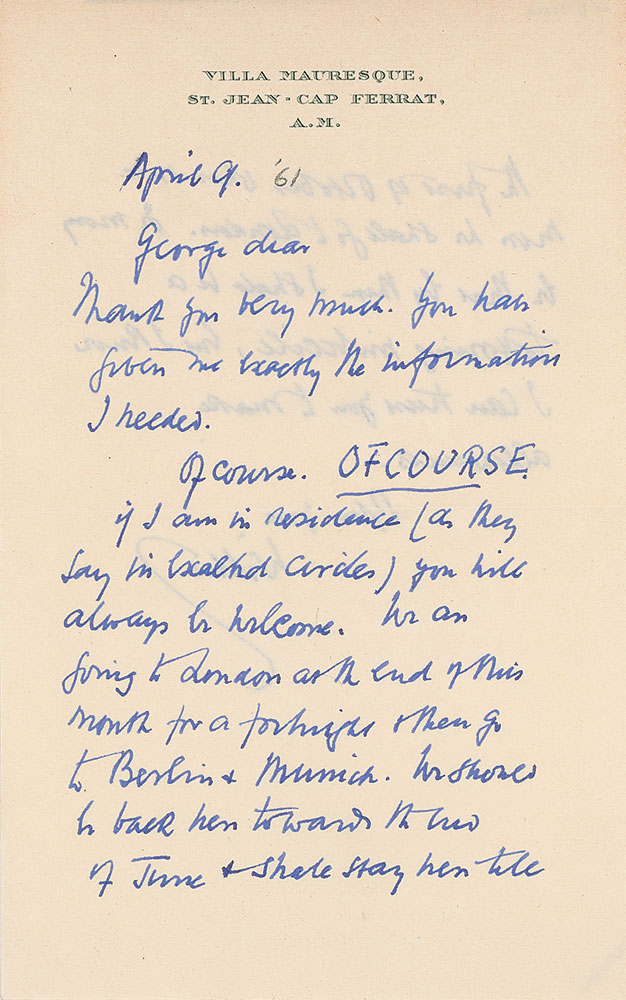 VILLA MAURESQUE,
ST. JEAN - CAP FERRAT,
A.M.
April 9. '61
George dear
Thank you very much. You have
given me exactly the information
I needed.
Of course. OF COURSE.
if I am in residence (as they
say in exalted circles) you will
always be welcome. We are
going to London at the end of this
month for a fortnight & then go
to Berlin & Munich. We should
be back here towards the end
of June & shall stay here till